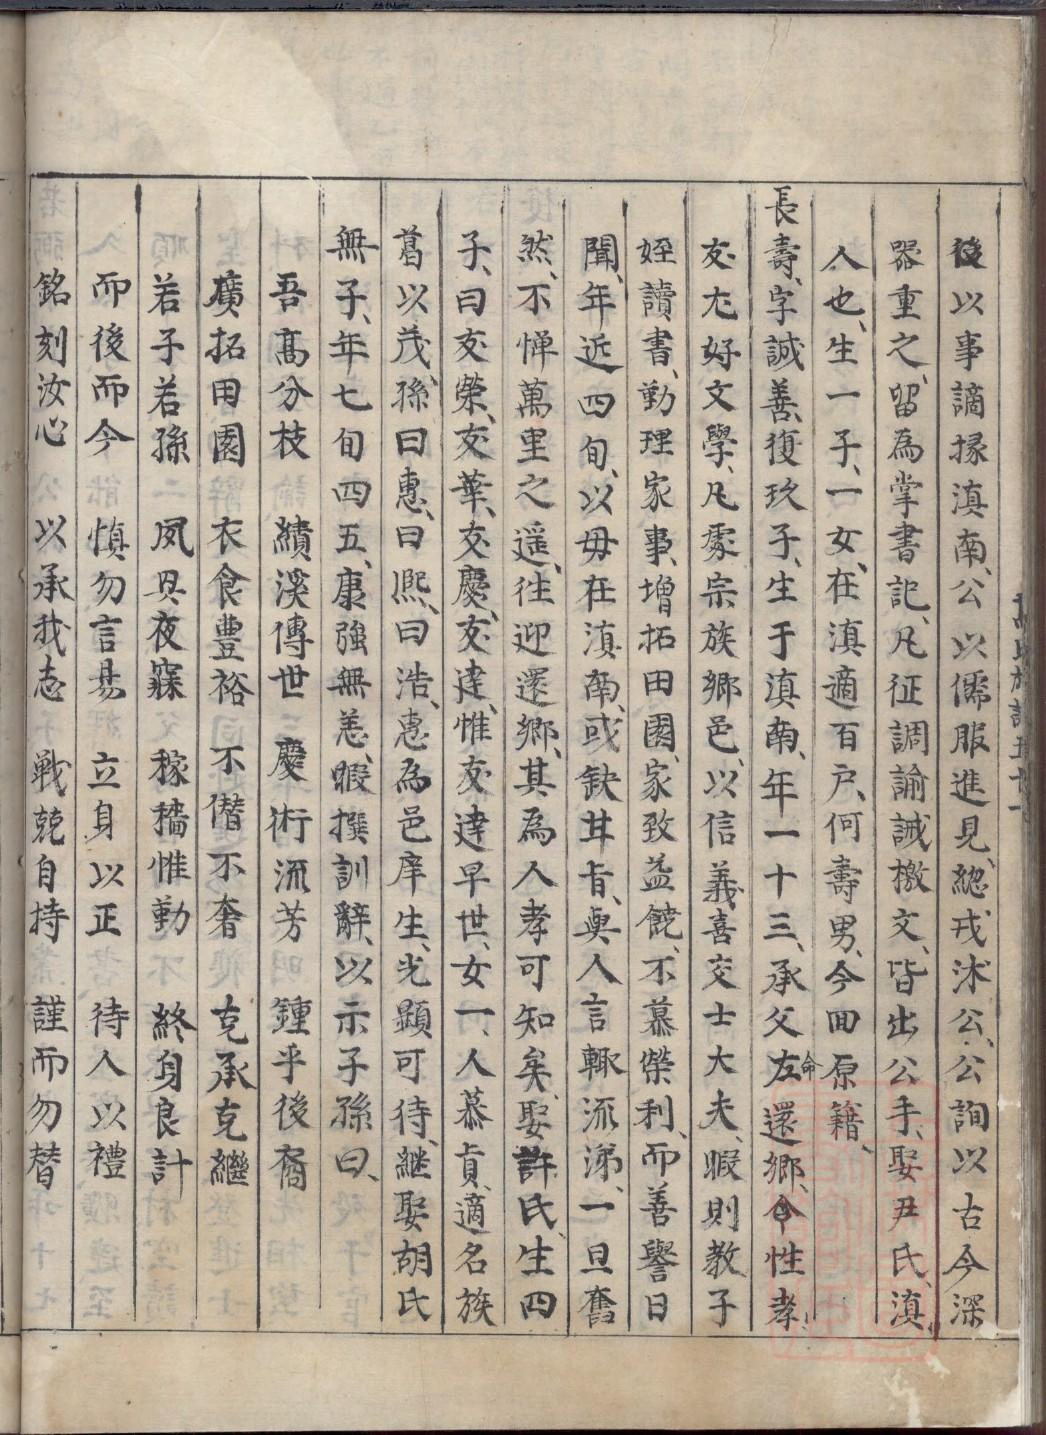 後以事謫掾滇南、公以儒服進見、緫戎沭公、公詢以古今深
器重之、留為掌書記、凡征調諭誡檄文、皆出公手、娶尹氏、滇
人也、生一子、一女、在滇適百戶、何壽男、今回原籍、
長壽、字誠善、復玖子、生于滇南、年一十三、承父命左還鄉、今性孝
友尤好文學、凡處宗族鄉邑、以信義喜交士大夫、暇則教子
姪讀書、勤理家事、增拓田園、家致益饒、不慕榮利、而善譽日
聞、年近四旬、以毋在滇南、或缺甘旨、與人言輙流涕、一旦奮
然、不憚萬里之遥、徃迎還鄉、其為人孝可知矣、娶許氏、生四
子、曰友榮、友華、友慶、友達、惟友達早世、女一、人慕貞、適名族
葛以茂、孫曰惠、曰熈、曰浩、惠為邑庠生、光顯可待、継娶胡氏
無子、年七旬四五、康強無恙、暇撰訓辭、以示子孫曰、
吾髙分枝 績溪傳世 慶術流芳 鍾乎後裔
廣拓田園 衣食豊裕 不僭不奢 克承克繼
若子若孫 夙興夜寐 稼穡惟勤 終身良計
而後而今 慎勿言易 立身以正 待人以禮
銘刻汝心 以承我志 戰兢自持 謹而勿替